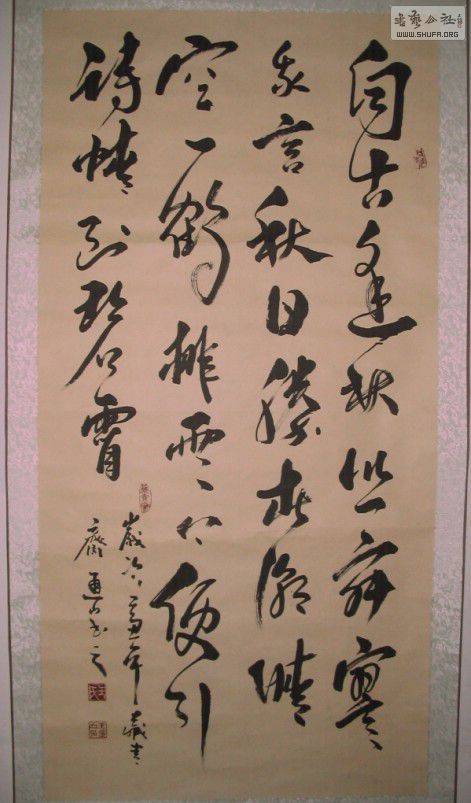 書藝公社
WWW.SHUFA.ORG
自古逢秋悲寂寥
我言秋日勝春潮晴
空一鶴排雲上便引
詩情到碧霄
歲次年藏書
齋書之